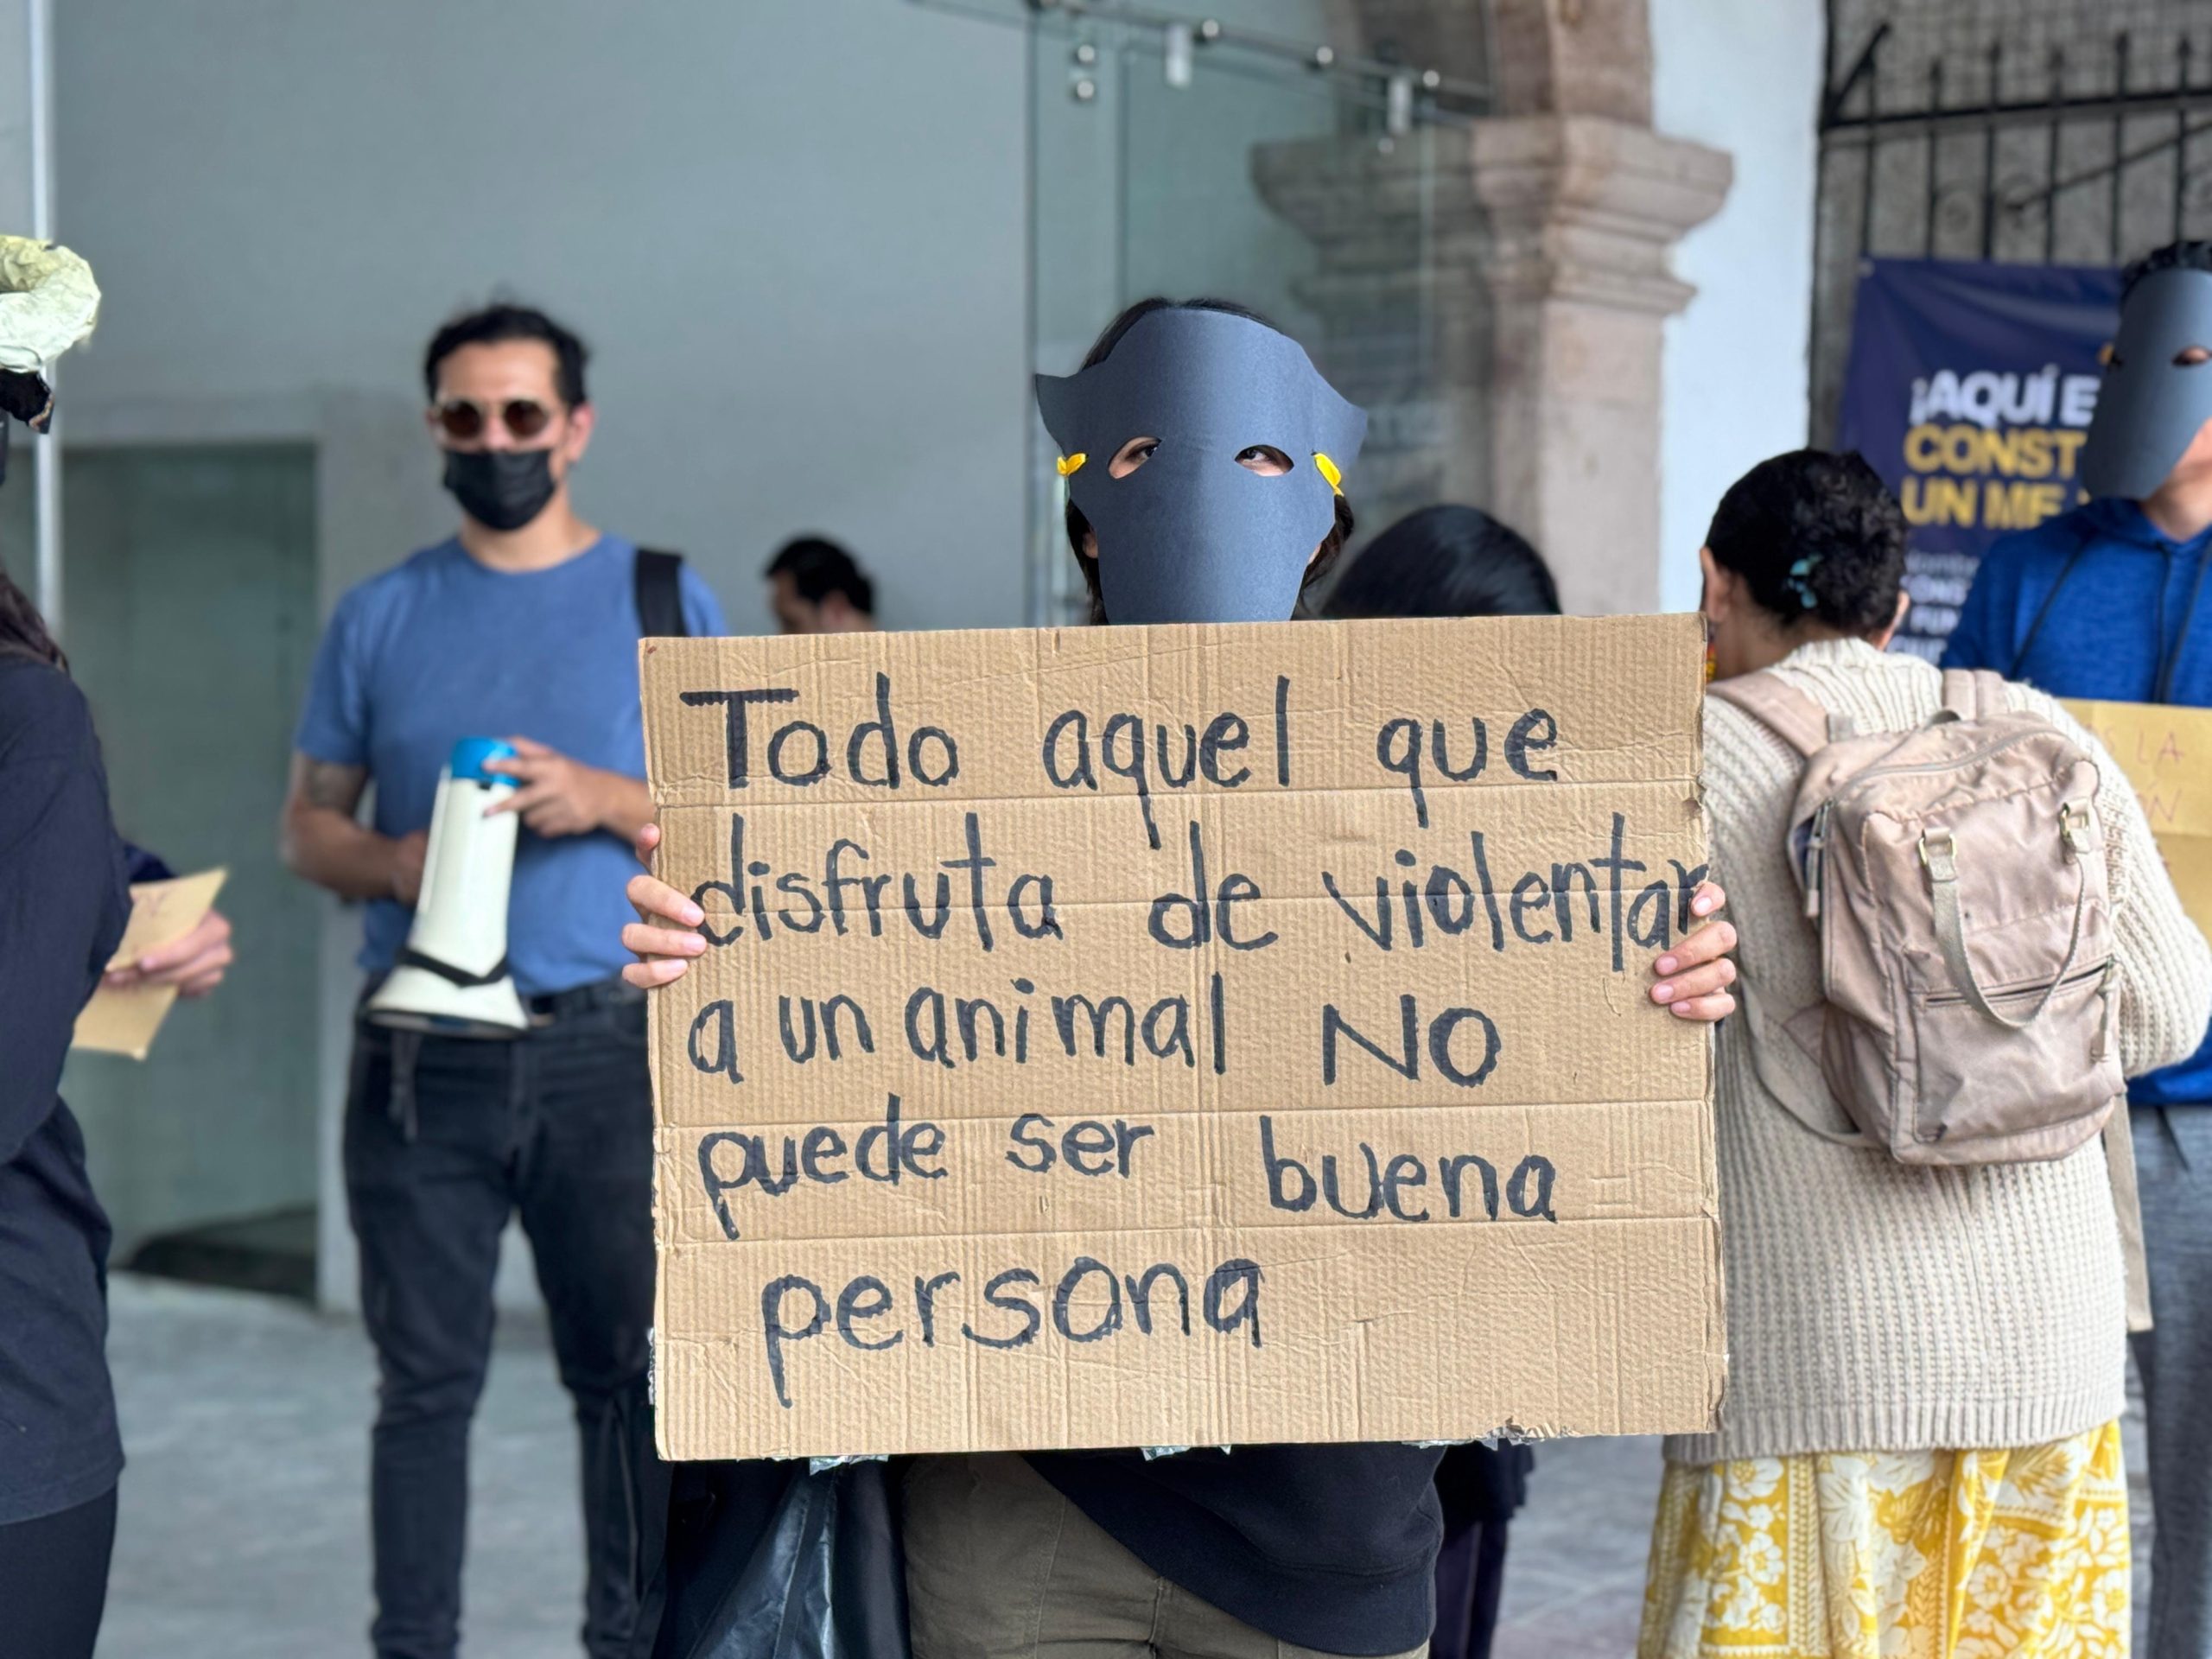 Todo aquel que
disfruta de violentar
a un animal NO
puede ser buena
persona
¡AQUÍ
CONST
UN ME
LA